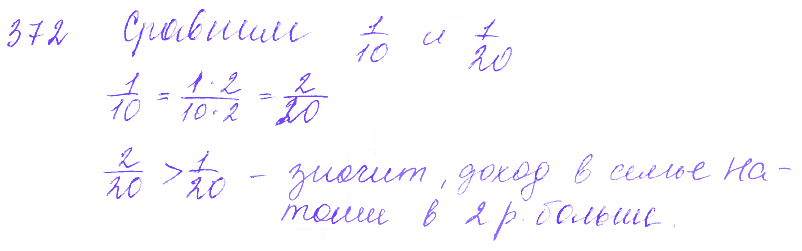 372 Сравним 1/10 и 1/20
1/10 = 1·2/10·2 = 2/20
2/20 > 1/20 – значит, доход в семье На-
таши в 2 р. больше.